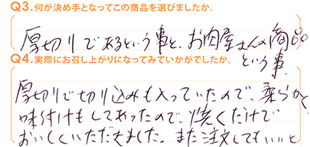 Q3.何が決め手となってこの商品を選びましたか。
厚切りであるという事と、お肉屋さんの商品
という事。
Q4.実際にお召し上がりになってみていかがでしたか。
厚切りで切り込みも入っていたので、柔らかく
味付けもしてあったので、焼くだけで
おいしくいただきました。また注文してもいいと